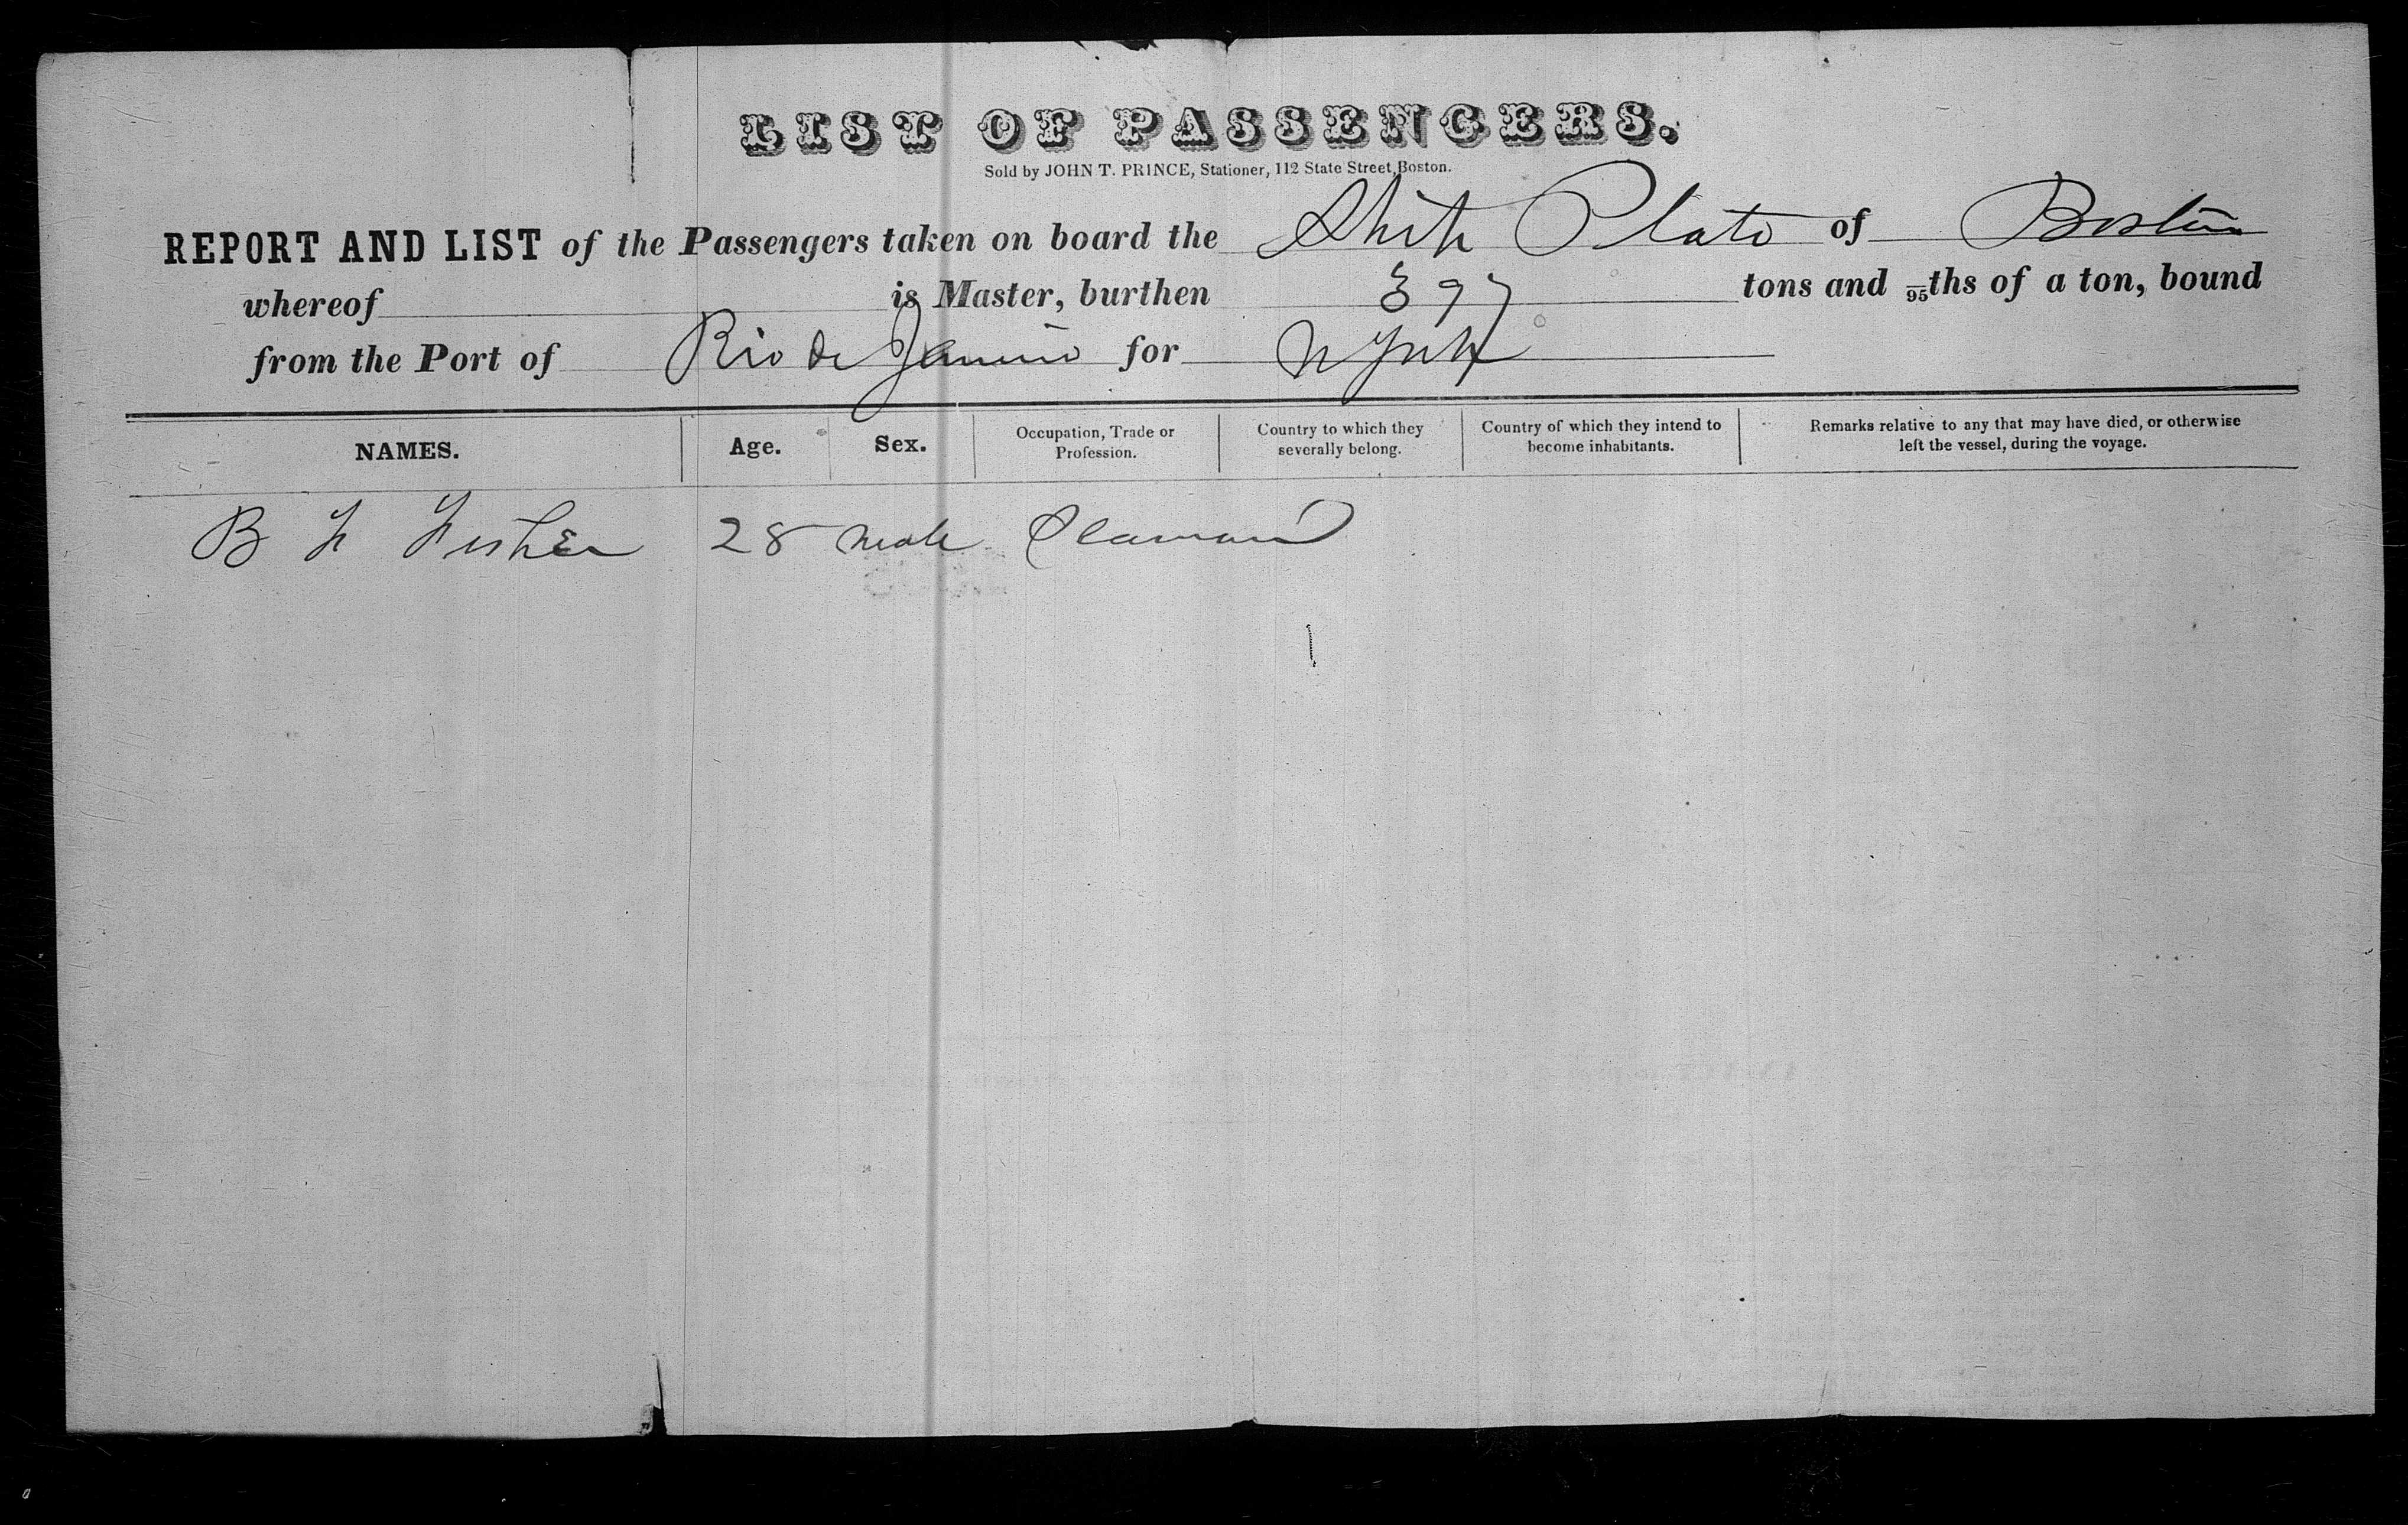 LIST OF PASSENGERS.
Sold by JOHN T. PRINCE, Stationer, 112 State Street, Boston.
REPORT AND LIST of the Passengers taken on board the Ship Plato of Boston
whereof is Master, burthen 397 tons and /95ths of a ton, bound
from the Port of Rio de Janeiro for N York
NAMES. Age. Sex. Occupation, Trade or Profession. Country to which they severally belong. Country of which they intend to become inhabitants. Remarks relative to any that may have died, or otherwise left the vessel, during the voyage.
B F Fisher 28 Male Seaman